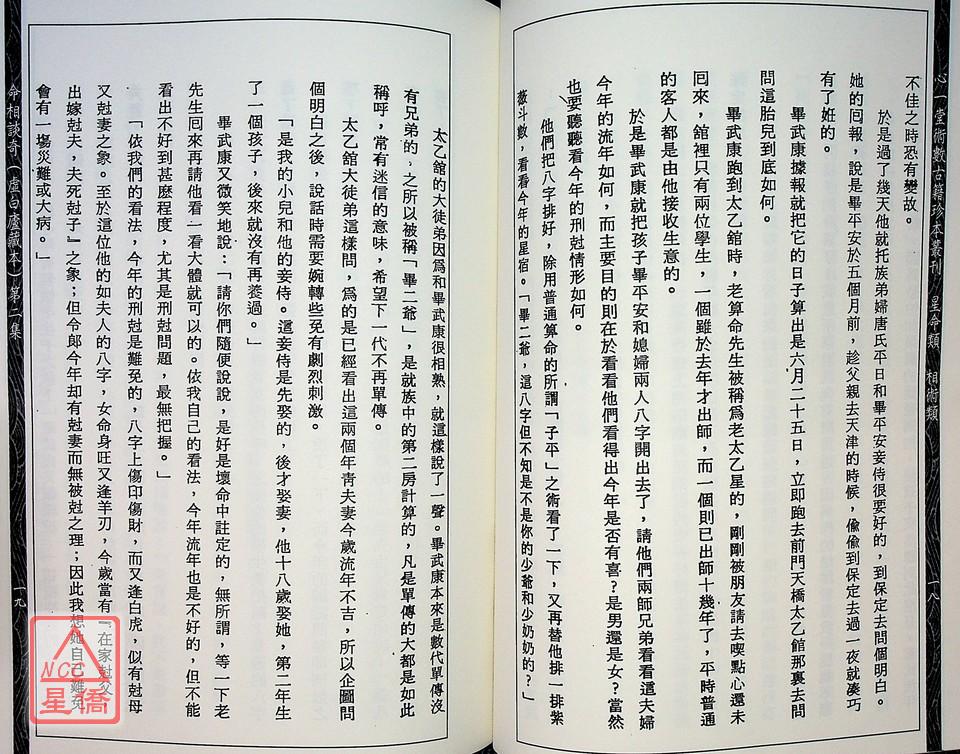 心一堂術數古籍珍本叢刊　星命類　相術類
一八
不佳之時恐有變故。
於是過了幾天他就托族弟婦唐氏平日和畢平安妾侍很要好的，到保定去問個明白。
她的囘報，說是畢平安於五個月前，趁父親去天津的時候，偸偸到保定去過一夜就湊巧
有了姙的。
畢武康據報就把它的日子算出是六月二十五日，立即跑去前門天橋太乙館那裏去問
問這胎兒到底如何。
畢武康跑到太乙舘時，老算命先生被稱爲老太乙星的，剛剛被朋友請去喫點心還未
囘來，舘裡只有兩位學生，一個雖於去年才出師，而一個則已出師十幾年了，平時普通
的客人都是由他接收生意的。
於是畢武康就把孩子畢平安和媳婦兩人八字開出去了，請他們兩師兄弟看看這夫婦
今年的流年如何，而主要目的則在於看看他們看得出今年是否有喜？是男還是女？當然
也要聽聽看今年的刑尅情形如何。
他們把八字排好，除用普通算命的所謂「子平」之術看了一下，又再替他排一排紫
薇斗數，看看今年的星宿。「畢二爺，這八字但不知是不是你的少爺和少奶奶的？」
太乙舘的大徒弟因爲和畢武康很相熟，就這樣說了一聲。畢武康本來是數代單傳沒
有兄弟的，之所以被稱「畢二爺」，是就族中的第二房計算的，凡是單傳的大都是如此
稱呼，常有迷信的意味，希望下一代不再單傳。
太乙舘大徒弟這樣問，爲的是已經看出這兩個年靑夫妻今歲流年不吉，所以企圖問
個明白之後，說話時需要婉轉些免有劇烈刺激。
「是我的小兒和他的妾侍。這妾侍是先娶的，後才娶妻，他十八歲娶她，第二年生
了一個孩子，後來就沒有再養過。」
畢武康又微笑地說：「請你們隨便說說，是好是壞命中註定的，無所謂，等一下老
先生囘來再請他看一看大體就可以的。依我自己的看法，今年流年也是不好的，但不能
看出不好到甚麽程度，尤其是刑尅問題，最無把握。」
「依我們的看法，今年的刑尅是難免的，八字上傷印傷財，而又逢白虎，似有尅母
又尅妻之象。至於這位他的如夫人的八字，女命身旺又逢羊刃，今歲當有『在家尅父，
出嫁尅夫，夫死尅子』之象；但令郎今年却有尅妻而無被尅之理；因此我想她自己難免
會有一場災難或大病。」
命相談奇（虛白廬藏本）第二集
一九
NCC
星僑